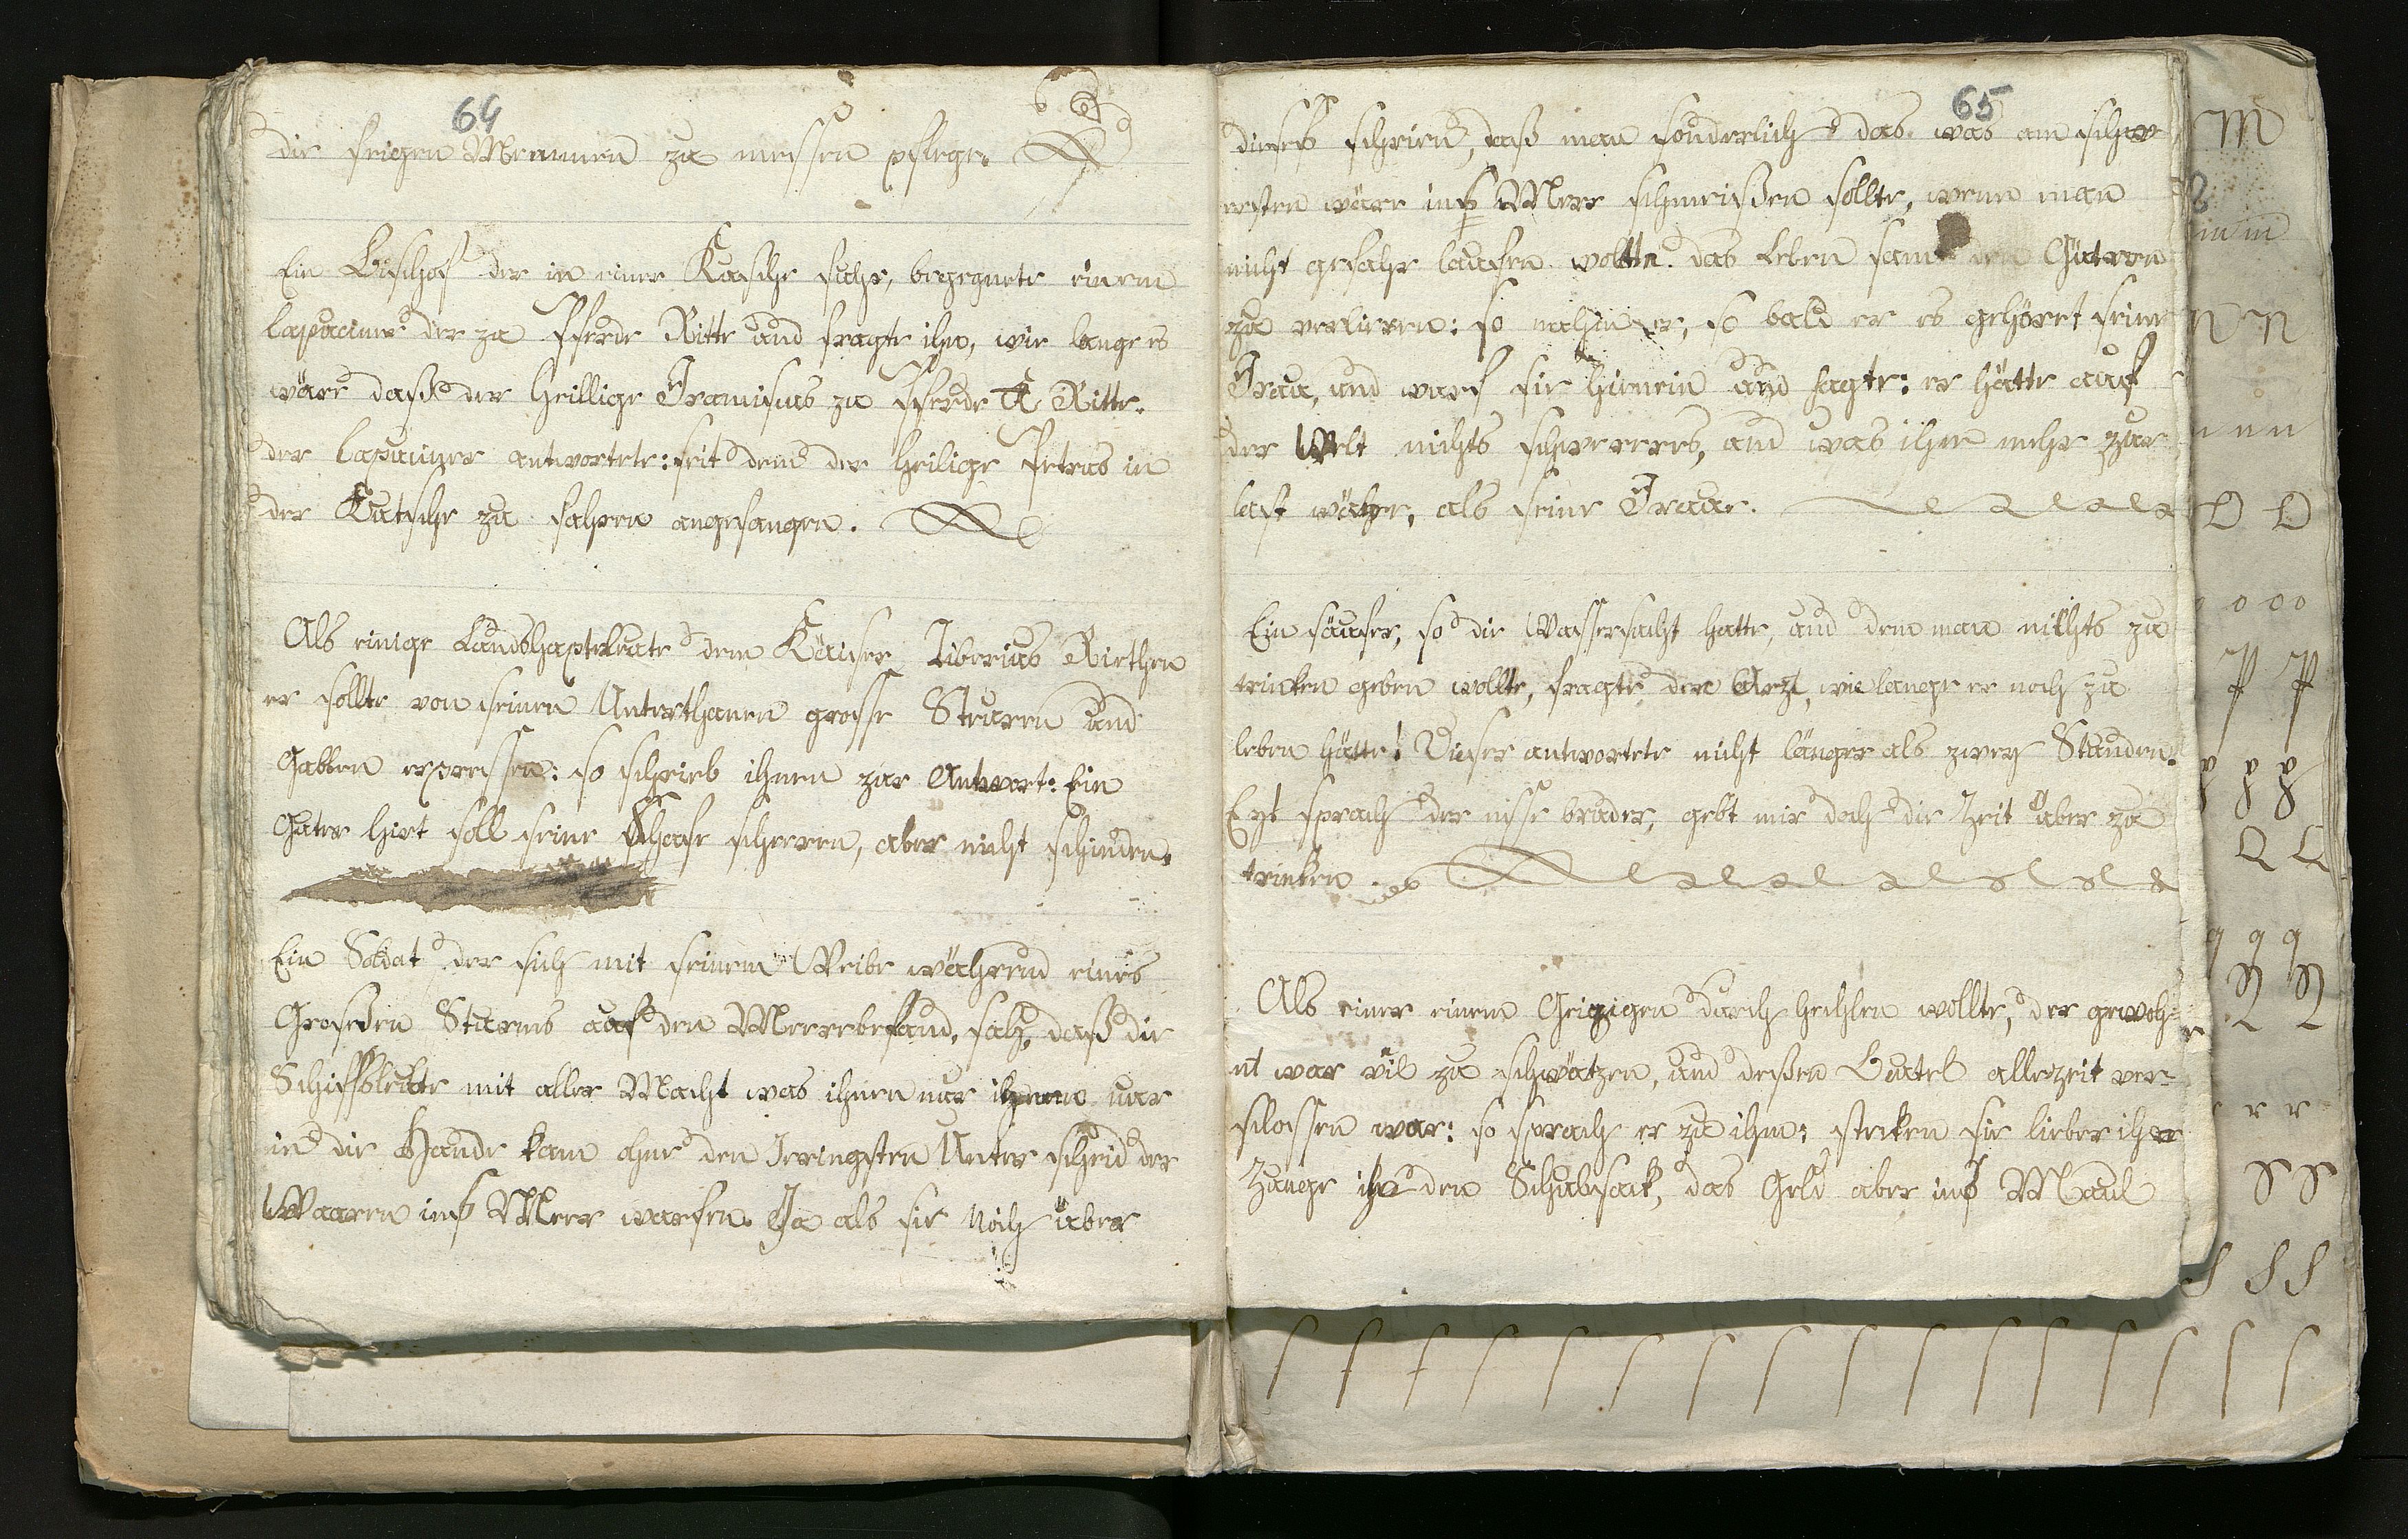 64
die feigen Memmen zu messen pflege.
Ein Bischof der in einer Kutsche fuhr, begegnete einem
Capuciner der zu Pferde Ritte und fragte ihn, wie lange es
wäre daß der heillige Franciscus zu Pferde Ritte.
der Capuciner antwortete: seit dem der heilige Petrus in
der Kutsche zu fahren angefangen.
Als einige Landshaptleute dem Käiser Tiberius Riethen
er sollte von seinen Unterthanen grosse Steuren und
Gabben erpressen: so schrieb ihnen zur Antwort: Ein
Guter hirt soll seine Schafe scherren, aber nicht schinden.
Ein Soldat der sich mit seinem Weibe während eines
Großen Sturms auf den Meere befand, sah, daß die
Schiffsleute mit aller Macht was ihnen nur ihnen nur
in die Hände kam ohne den Jeringsten Unterscheid der
Waaren inß Meer warfen. Ja als sie Noch über
65
dieseß schrien, daß man sonderlich das was am schwe
resten wäre inß Meer schmeißen sollte, wenn man
nicht gefahr laufen wollte das Leben samt den Gütern
zu verlieren: so nahm er, so bald er es gehöret seine
Frau, und warf sie hinnein und sagte: er hätte auf
der Welt nichts schwerrers, und was ihm mehr zur
last wäre, als seine Fraue.
Ein säufer, so die Wassersucht hatte, und dem man nichts zu
trinken geben wollte, fragte den Arzt, wie lange er noch zu
leben hätte! Dieser antwortete nicht länger als zwey Stunden.
Ey sprach der nisse bruder, gebt mir doch die Zeit über zu
trinken.
Als einer einem Geizigen durch hechlen wollte, der gewoh
nt war vil zu schwätzen, und deßen Beutel allezeit ver-
schlossen war: so sprach er zu ihm: steken sie lieber ihre
Zunge in den Schubsack, das Geld aber inß Maul
M
m m
N N
n n n
O O
o o o
P P
p p p
Q Q
q q q
R R
r r r
S S
s s s
ſ ſ ſ ſ ſ ſ ſ ſ ſ ſ ſ ſ ſ ſ ſ ſ